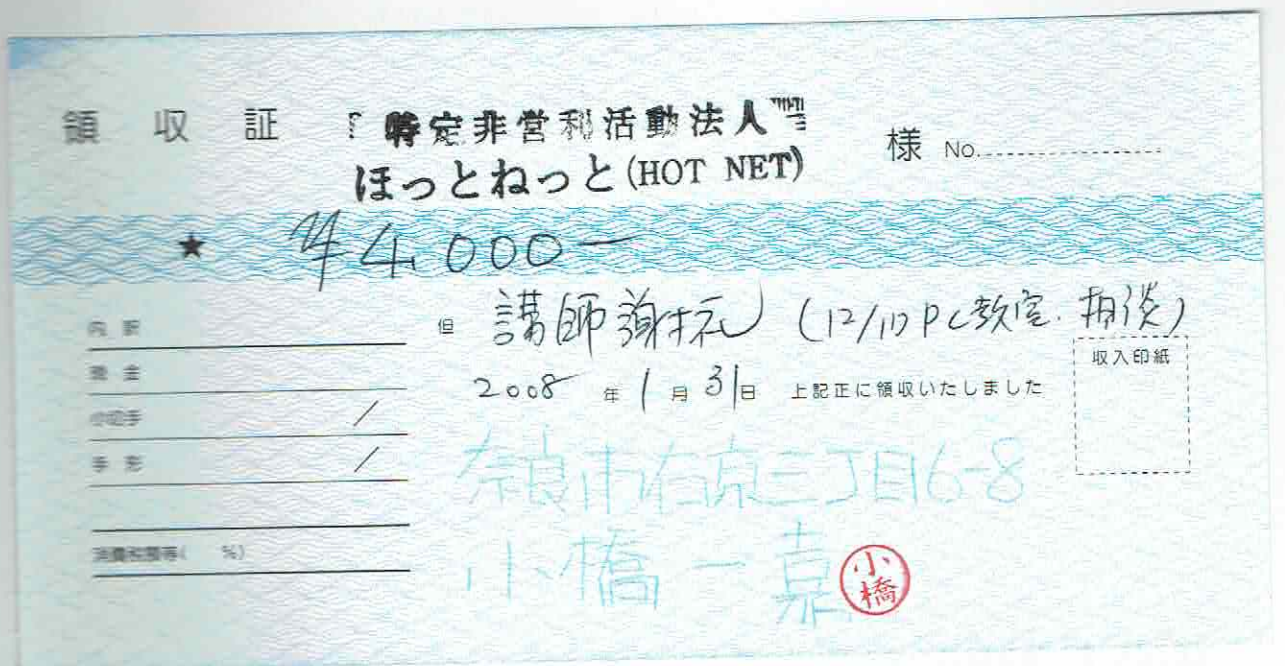 領収証 特定非営利活動法人
ほっとねっと(HOT NET) 様 No.
★ ¥4,000-
但 講師謝礼 (12/10 PC教室・相談)
収入印紙
2008年1月31日 上記正に領収いたしました
内訳
現金
小切手 /
手形 /
消費税額等( %)
奈良市右京三丁目6-8
小橋一嘉
小橋